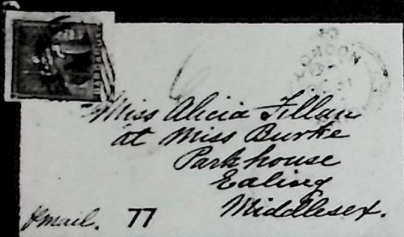 LONDON
Miss Alicia Fillan
at Miss Burke
Parkhouse
Ealing
Middlesex.
pmail. 77